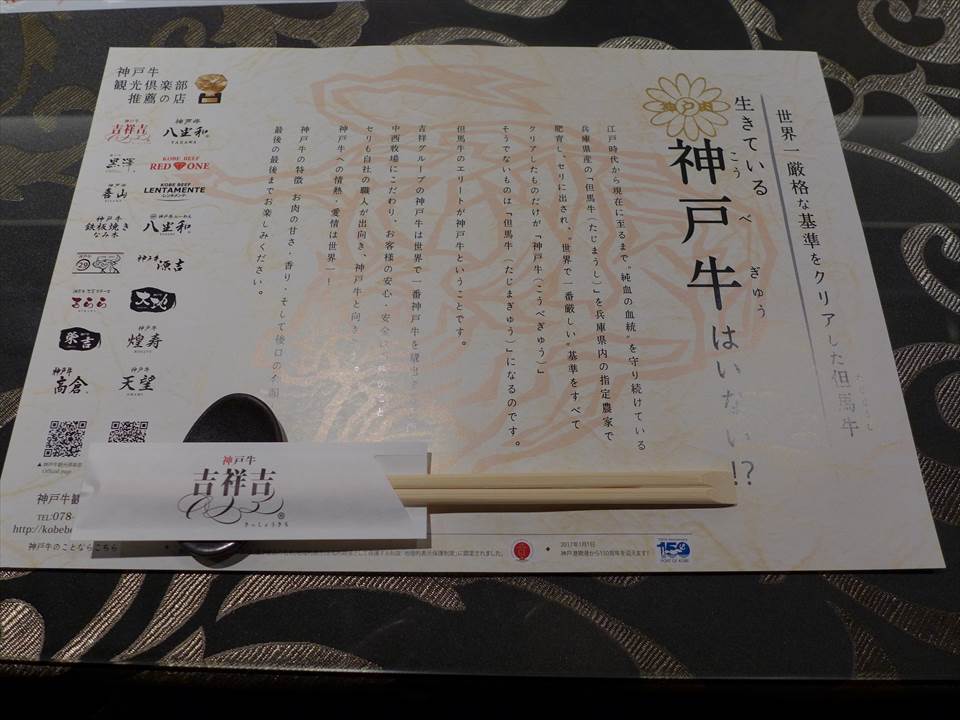 世界一厳格な基準をクリアした但馬牛
生きている
神戸牛はいない!?
こう べ ぎゅう
江戸時代から現在に至るまで“純血の血統”を守り続けている
兵庫県産の「但馬牛(たじまうし)」を兵庫県内の指定農家で
肥育し、セリに出され、“世界で一番厳しい”基準をすべて
クリアしたものだけが「神戸牛(こうべぎゅう)」
そうでないものは「但馬牛(たじまぎゅう)」になるのです。
但馬牛のエリートが神戸牛ということです。
吉祥グループの神戸牛は世界で一番神戸牛を
中西牧場にこだわり、お客様の安心・安全
セリも自社の職人が出向き、神戸牛と向き
神戸牛への情熱・愛情は世界一!
神戸牛の特徴 お肉の甘さ・香り、そして後口の
最後の最後までお楽しみください。
神戸牛
観光倶楽部
推薦の店
神戸牛
吉祥吉
神戸牛
八坐和
YAZAWA
黒澤
KOBE BEEF
RED ONE
喜山
KOBE BEEF
LENTAMENTE
レンタメンテ
神戸牛
鉄板焼き
なみ木
八坐和
29
神戸牛
るらら
栄吉
神戸牛
煌寿
神戸牛
高倉
神戸牛
天望
▲神戸牛観光倶楽部
Official page
神戸牛観
TEL:078-
http://kobebe
神戸牛のことならこちら
神戸牛
吉祥吉
®
きっしょうきち
2017年1月1日
神戸港開港から150周年を迎えます!
150
PORT OF KOBE